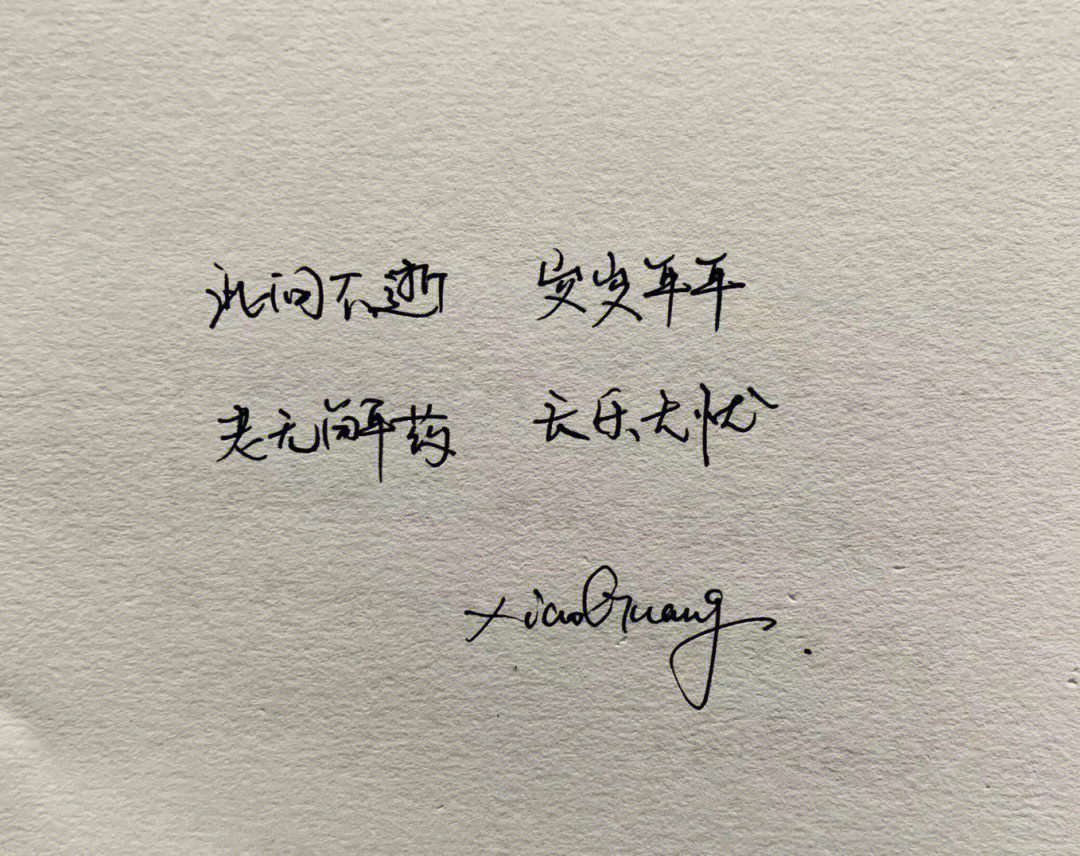 此间不逝 岁岁年年
老无解药 长乐无忧
xiaoGuang.